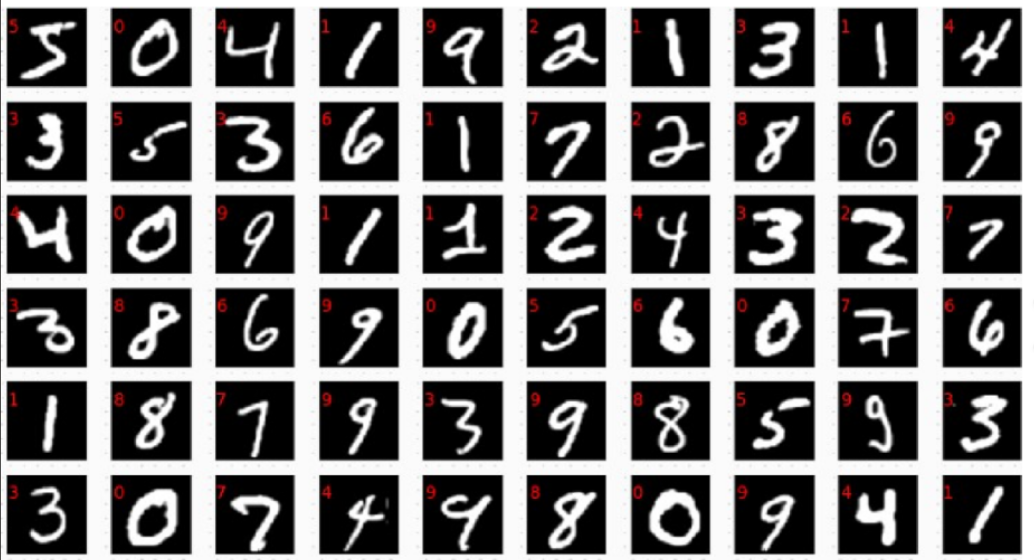 5 5 0 0 4 4 1 1 9 9 2 2 1 1 3 3 1 1 4 4
3 3 5 5 3 3 6 6 1 1 7 7 2 2 8 8 6 6 9 9
4 4 0 0 9 9 1 1 1 1 2 2 4 4 3 3 2 2 7 7
3 3 8 8 6 6 9 9 0 0 5 5 6 6 0 0 7 7 6 6
1 1 8 8 7 7 9 9 3 3 9 9 8 8 5 5 9 9 3 3
3 3 0 0 7 7 4 4 9 9 8 8 0 0 9 9 4 4 1 1